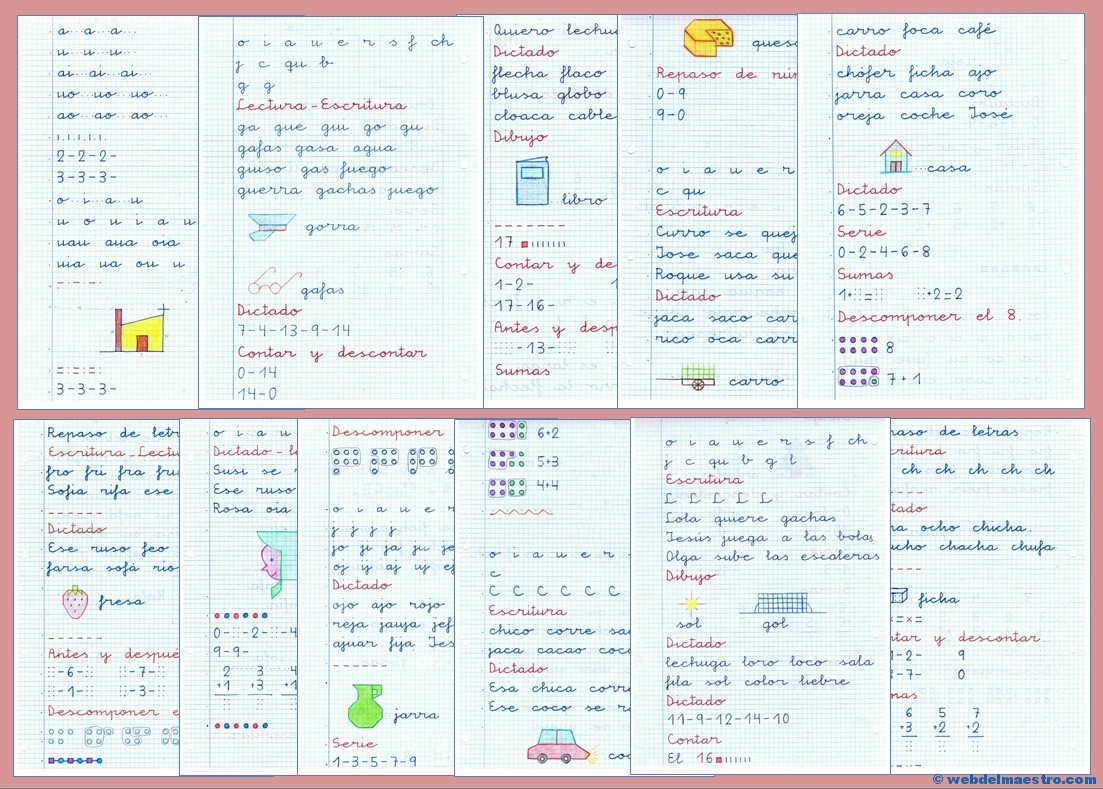 a...a...a...
u...u...u...
ai...ai...ai...
uo...uo...uo...
ao...ao...ao...
1.1.1.1.1.
2-2-2-
3-3-3-
o...i...a...u
u o u i a u
uau aua oia
uia ua ou u
3-3-3-
o i a u e r s f ch
j c qu b
g g
Lectura-Escritura
ga gue gui go gu
gafas gasa agua
guiso gas fuego
guerra gachas juego
gorra
gafas
Dictado
7-4-13-9-14
Contar y descontar
0-14
14-0
Quiero lechu
Dictado
flecha flaco
blusa globo
cloaca cable
Dibujo
libro
17
Contar y de
1-2-
17-16-
Antes y desp
-13-
Sumas
ques
Repaso de nú
0-9
9-0
o i a u e r
c qu
Escritura
Curro se quej
Jose saca que
Roque usa su
Dictado
jaca saco car
rico oca carr
carro
carro foca café
Dictado
chófer ficha ajo
jarra casa coro
oreja coche José
casa
Dictado
6-5-2-3-7
Serie
0-2-4-6-8
Sumas
1+::=:: ::+2=2
Descomponer el 8.
8
7+1
Repaso de letr
Escritura-Lectu
fro fri fra fru
Sofía rifa ese
Dictado
Ese ruso feo
farsa sofá río
fresa
Antes y despué
::-6-:: ::-7-::
::-1-:: ::-3-::
Descomponer e
o i a u
Dictado-le
Susi se
Ese ruso
Rosa oía
0-::-2-::-4
9-9-
2 3 4
+1 +3 +1
Descomponer
o i a u e r
j j j j
jo ji ja ju je
oj ij aj uj ej
Dictado
ojo ajo rojo
reja jauja jef
ajuar fija Jes
jarra
Serie
1-3-5-7-9
6+2
5+3
4+4
o i a u e r
c
C C C C C C
Escritura
chico corre sa
jaca cacao coc
Dictado
Esa chica corr
Ese coco se r
co
o i a u e r s f ch
j c qu b g l
Escritura
L L L L L
Lola quiere gachas
Jesús juega a las bolas
Olga sube las escaleras
Dibujo
sol gol
Dictado
lechuga loro loco sala
fila sol color liebre
Dictado
11-9-12-14-10
Contar
El 16
aso de letras
critura
ch ch ch ch
tado
ha ocho chicha.
ucho chacha chufa
ficha
ntar y descontar
1-2- 9
8-7- 0
mas
6 5 7
+3 +2 +2
© webdelmaestro.com